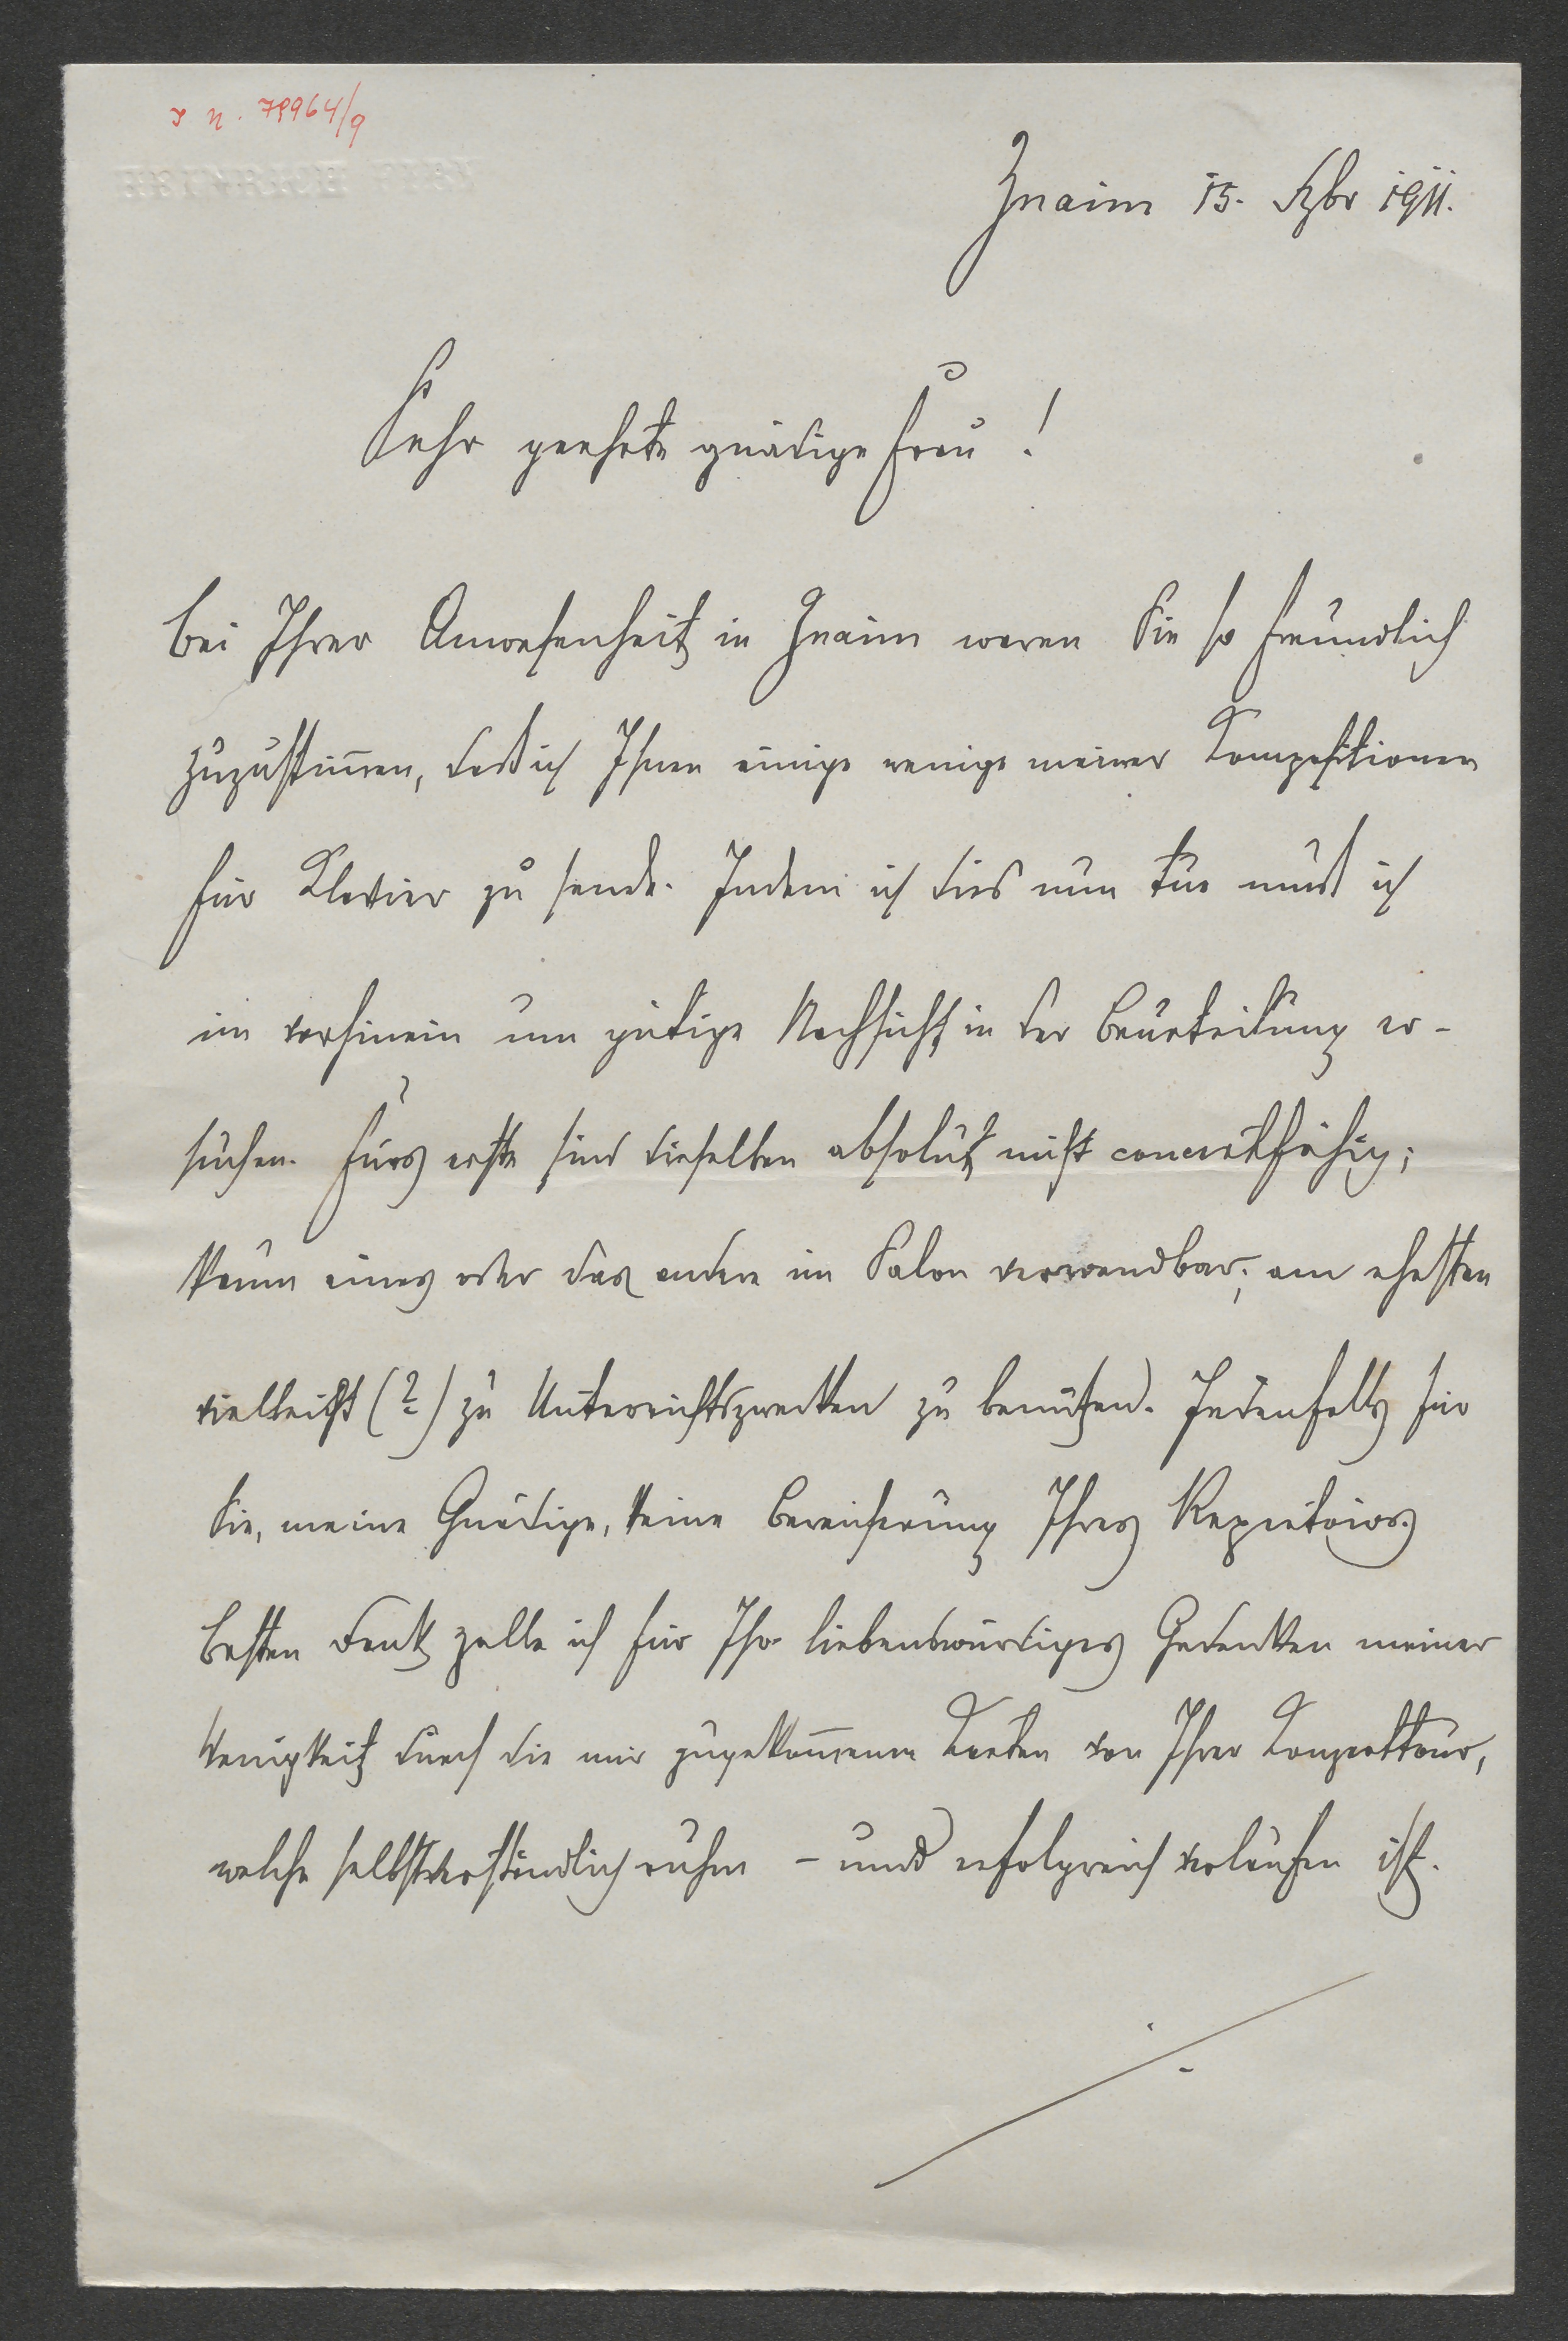 I. N. 79964/9
Znaim 15. Xbr 1911.
Sehr geehrte gnädige Frau!
Bei Ihrer Anwesenheit in Znaim waren Sie so freundlich
zuzustim̅en, daß ich Ihnen einige wenige meiner Kompositionen
für Klavier zu sende. Indem ich dies nun tue muß ich
im vorhinein um gütige Nachsicht in der Beurteilung er-
suchen. Fürs erste sind dieselben absolut nicht concertfähig;
kaum eines oder das andere im Salon verwendbar; am ehesten
vielleicht (?) zu Unterrichtszwecken zu benützen. Jedenfalls für
Sie, meine Gnädige, keine Bereicherung Ihres Repertoirs.
Besten Dank zolle ich für Ihr liebenswürdiges Gedenken meiner
Wenigkeit durch die mir zugekom̅enen Karten von Ihrer Konzerttour,
welche selbstverständlich ruhm - und erfolgreich verlaufen ist.